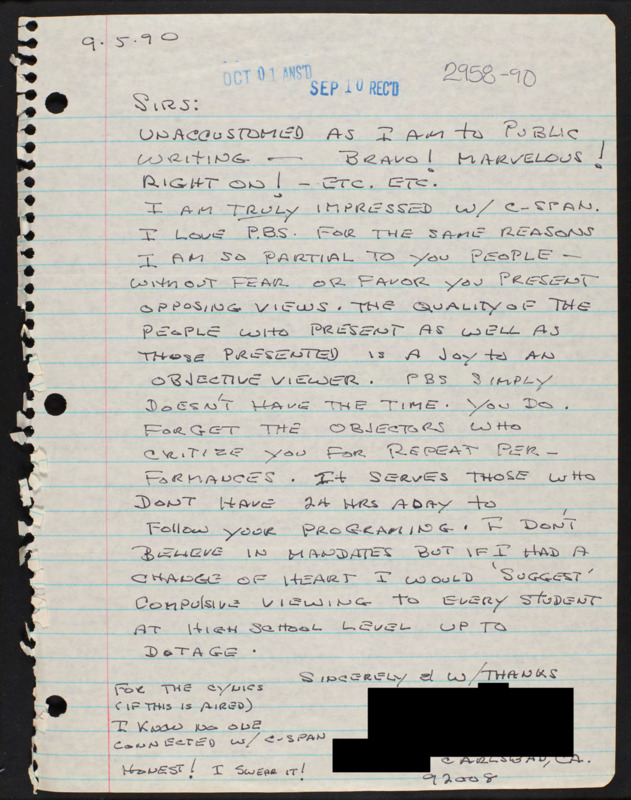 9.5.90
OCT 01 ANS'D
SEP 10 REC'D
2958-90
SIRS:
UNACCUSTOMED AS I AM TO PUBLIC
WRITING — BRAVO! MARVELOUS!
RIGHT ON! - ETC. ETC.
I AM TRULY IMPRESSED W/ C-SPAN.
I LOVE P.B.S. FOR THE SAME REASONS
I AM SO PARTIAL TO YOU PEOPLE —
WITHOUT FEAR OR FAVOR YOU PRESENT
OPPOSING VIEWS. THE QUALITY OF THE
PEOPLE WHO PRESENT AS WELL AS
THOSE PRESENTED IS A JOY TO AN
OBJECTIVE VIEWER. PBS SIMPLY
DOESN'T HAVE THE TIME. YOU DO.
FORGET THE OBJECTORS WHO
CRITIZE YOU FOR REPEAT PER-
FORMANCES. IT SERVES THOSE WHO
DONT HAVE 24 HRS ADAY TO
FOLLOW YOUR PROGRAMING. I DON'T
BELIEVE IN MANDATES BUT IF I HAD A
CHANGE OF HEART I WOULD 'SUGGEST'
COMPULSIVE VIEWING TO EVERY STUDENT
AT HIGH SCHOOL LEVEL UP TO
DOTAGE.
SINCERELY & W/THANKS
FOR THE CYNICS
(IF THIS IS AIRED)
I KNOW NO ONE
CONNECTED W/ C-SPAN
HONEST! I SWEAR IT!
CARLSBAD, CA.
92008